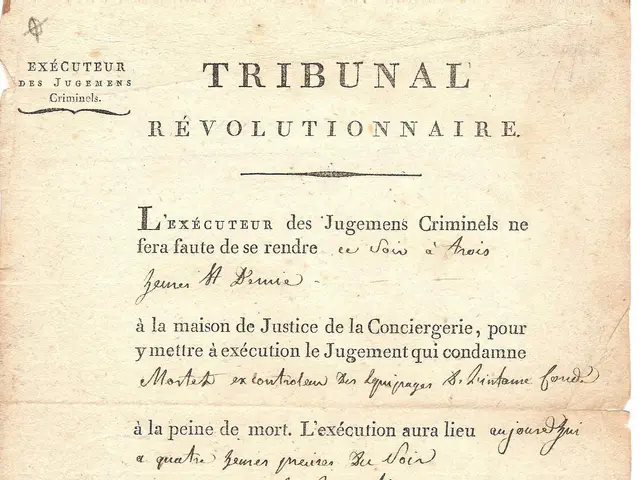 EXÉCUTEUR
DES JUGEMENS
Criminels.
TRIBUNAL
RÉVOLUTIONNAIRE.
L'EXÉCUTEUR des Jugemens Criminels ne
fera faute de se rendre ce Soir à trois
heures et Demie
à la maison de Justice de la Conciergerie, pour
y mettre à exécution le Jugement qui condamne
ex controleur Des Equipages
à la peine de mort. L'exécution aura lieu aujourd'hui
a quatre heures précises Du Soir